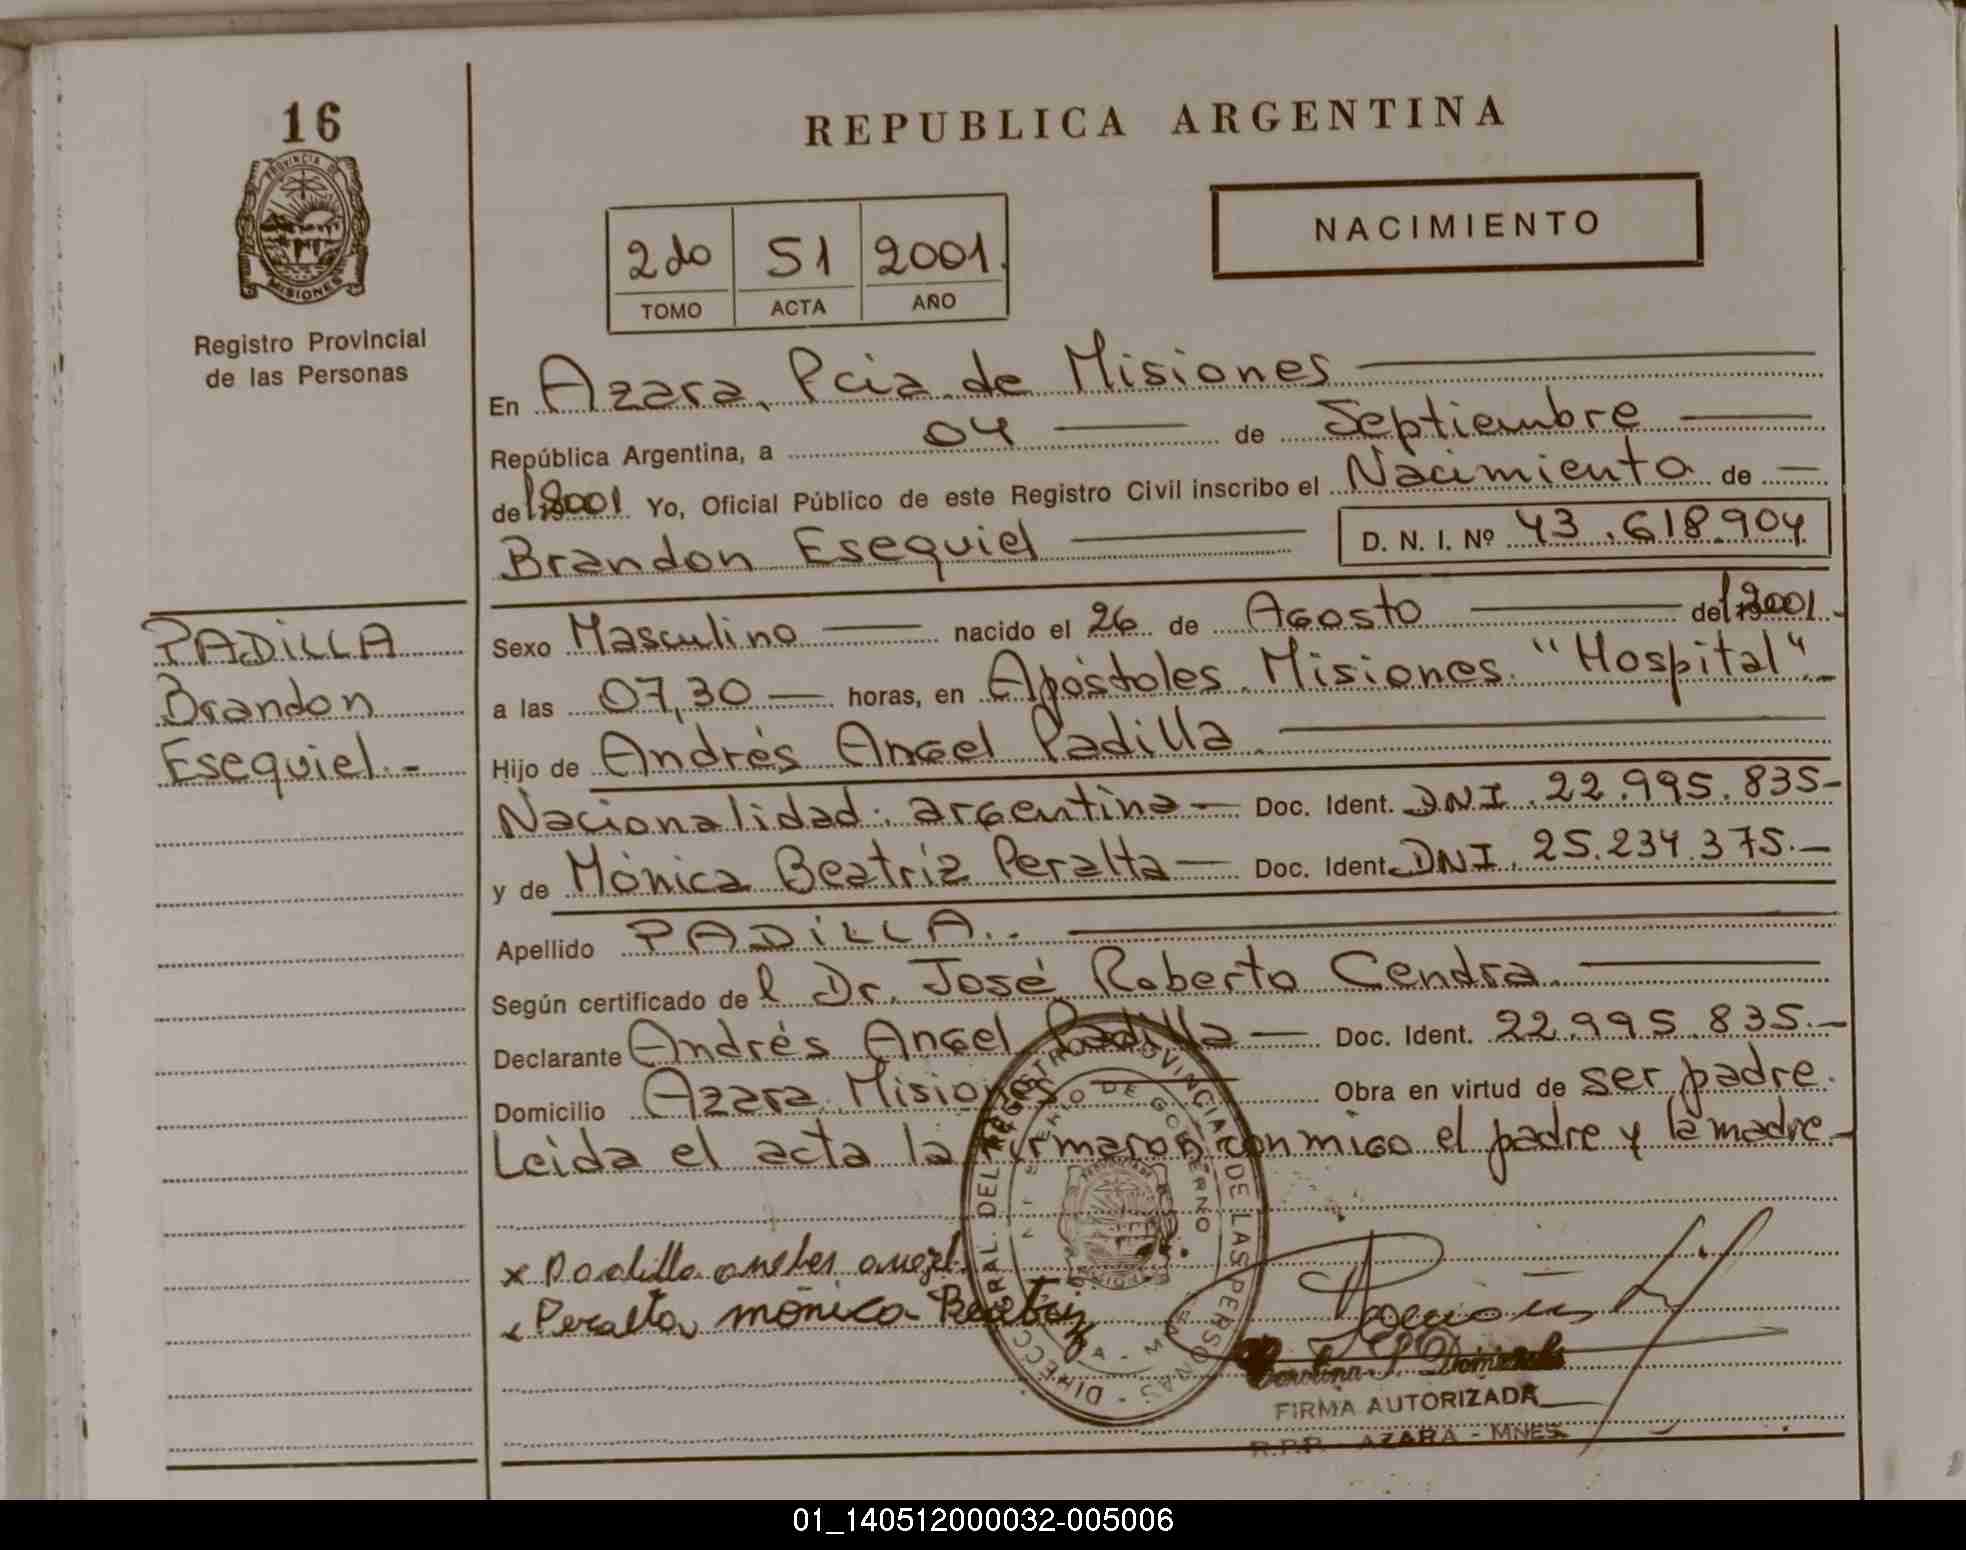 16
PROVINCIA DE
MISIONES
Registro Provincial
de las Personas
REPUBLICA ARGENTINA
NACIMIENTO
2do 51 2001.
TOMO ACTA AÑO
En Azara, Pcia. de Misiones
República Argentina, a 04 de Septiembre
de 2001 Yo, Oficial Público de este Registro Civil inscribo el Nacimiento de
Brandon Esequiel D. N. I. Nº 43.618.904
PADILLA
Brandon
Esequiel.-
Sexo Masculino nacido el 26 de Agosto de 2001.-
a las 07,30 horas, en Apóstoles. Misiones. "Hospital".-
Hijo de Andrés Angel Padilla.
Nacionalidad: argentina - Doc. Ident. DNI. 22.995.835-
y de Mónica Beatriz Peralta - Doc. Ident. DNI. 25.234.375.-
Apellido PADILLA..
Según certificado del Dr. José Roberto Cendra.
Declarante Andrés Angel Padilla - Doc. Ident. 22.995.835.-
Domicilio Azara. Misiones Obra en virtud de ser padre.
Leida el acta la firmaron conmigo el padre y la madre-
x Padilla andres angel.
x Peralta mónica Beatriz
DIRECC. GRAL. DEL REGISTRO PROVINCIAL DE LAS PERSONAS
MINISTERIO DE GOBIERNO
FIRMA AUTORIZADA
R.P.P. - AZARA - MNES.
01_140512000032-005006